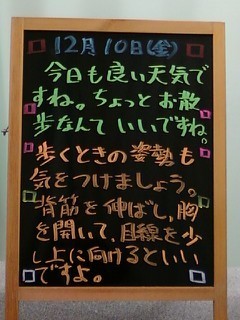 12月10日(金)
今日も良い天気で
すね。ちょっとお散
歩なんていいですね。
歩くときの姿勢も
気をつけましょう。
背筋を伸ばし、胸
を開いて、目線を少
し上に向けるといい
ですよ。